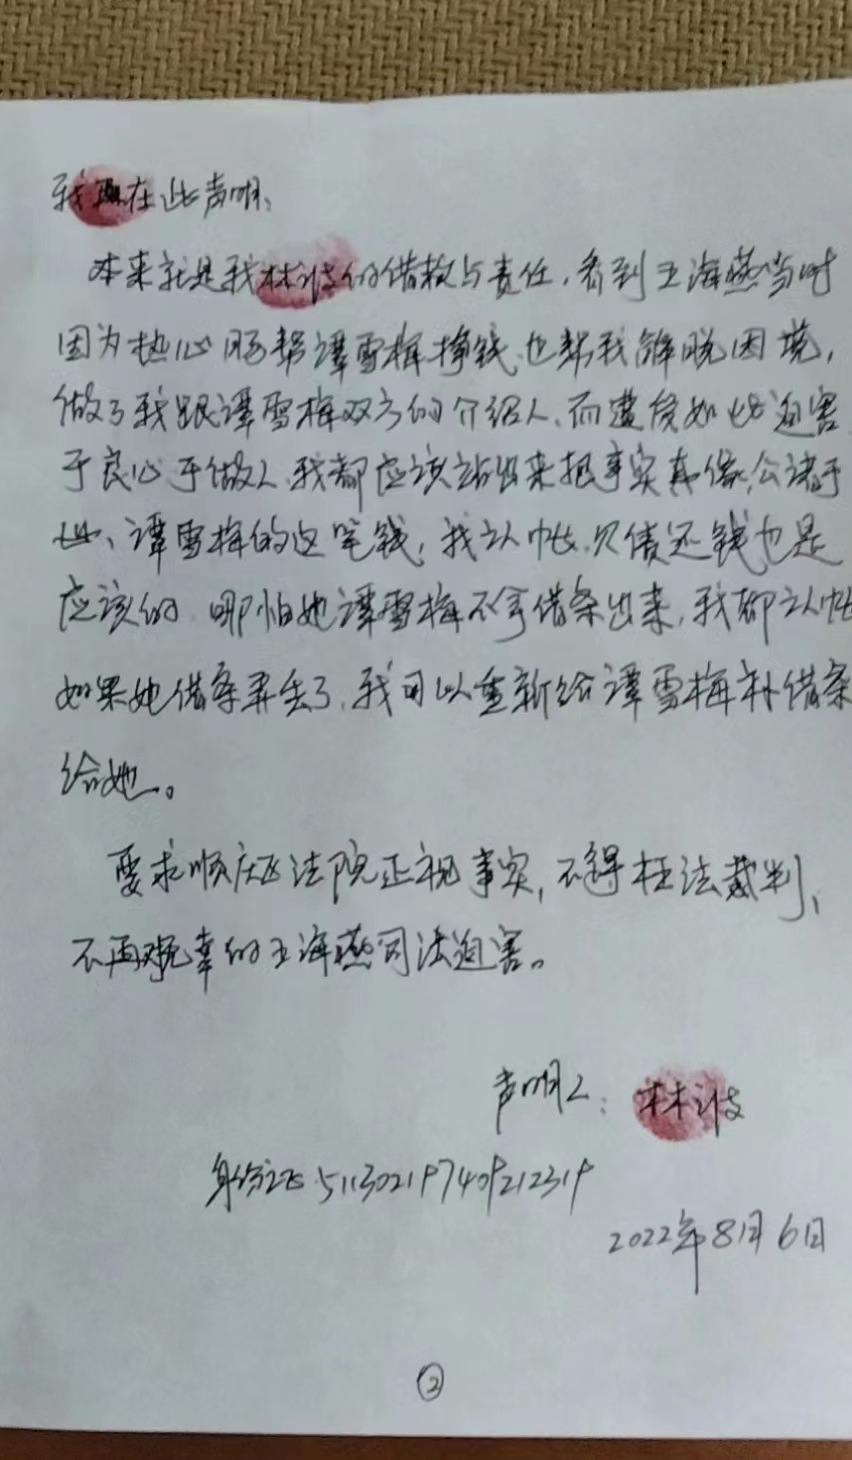 我现在此声明：
本来就是我林波的借款与责任，看到王海燕当时
因为热心肠帮谭雪梅挣钱、也帮我解脱困境，
做了我跟谭雪梅双方的介绍人、而遭受如此迫害
于良心于做人、我都应该站出来把事实真像，公诸于
世、谭雪梅的这笔钱，我认帐、欠债还钱也是
应该的、哪怕她谭雪梅不拿借条出来，我都认帐
如果她借条弄丢了、我可以重新给谭雪梅补借条
给她。
要求顺庆区法院正视事实，不得枉法裁判，
不再对无辜的王海燕司法迫害。
声明人：林波
身份证：511302197409212319
2022年8月6日
②